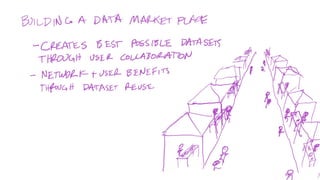 BUILDING A DATA MARKET PLACE
- CREATES BEST POSSIBLE DATASETS
THROUGH USER COLLABORATION
- NETWORK + USER BENEFITS
THROUGH DATASET REUSE